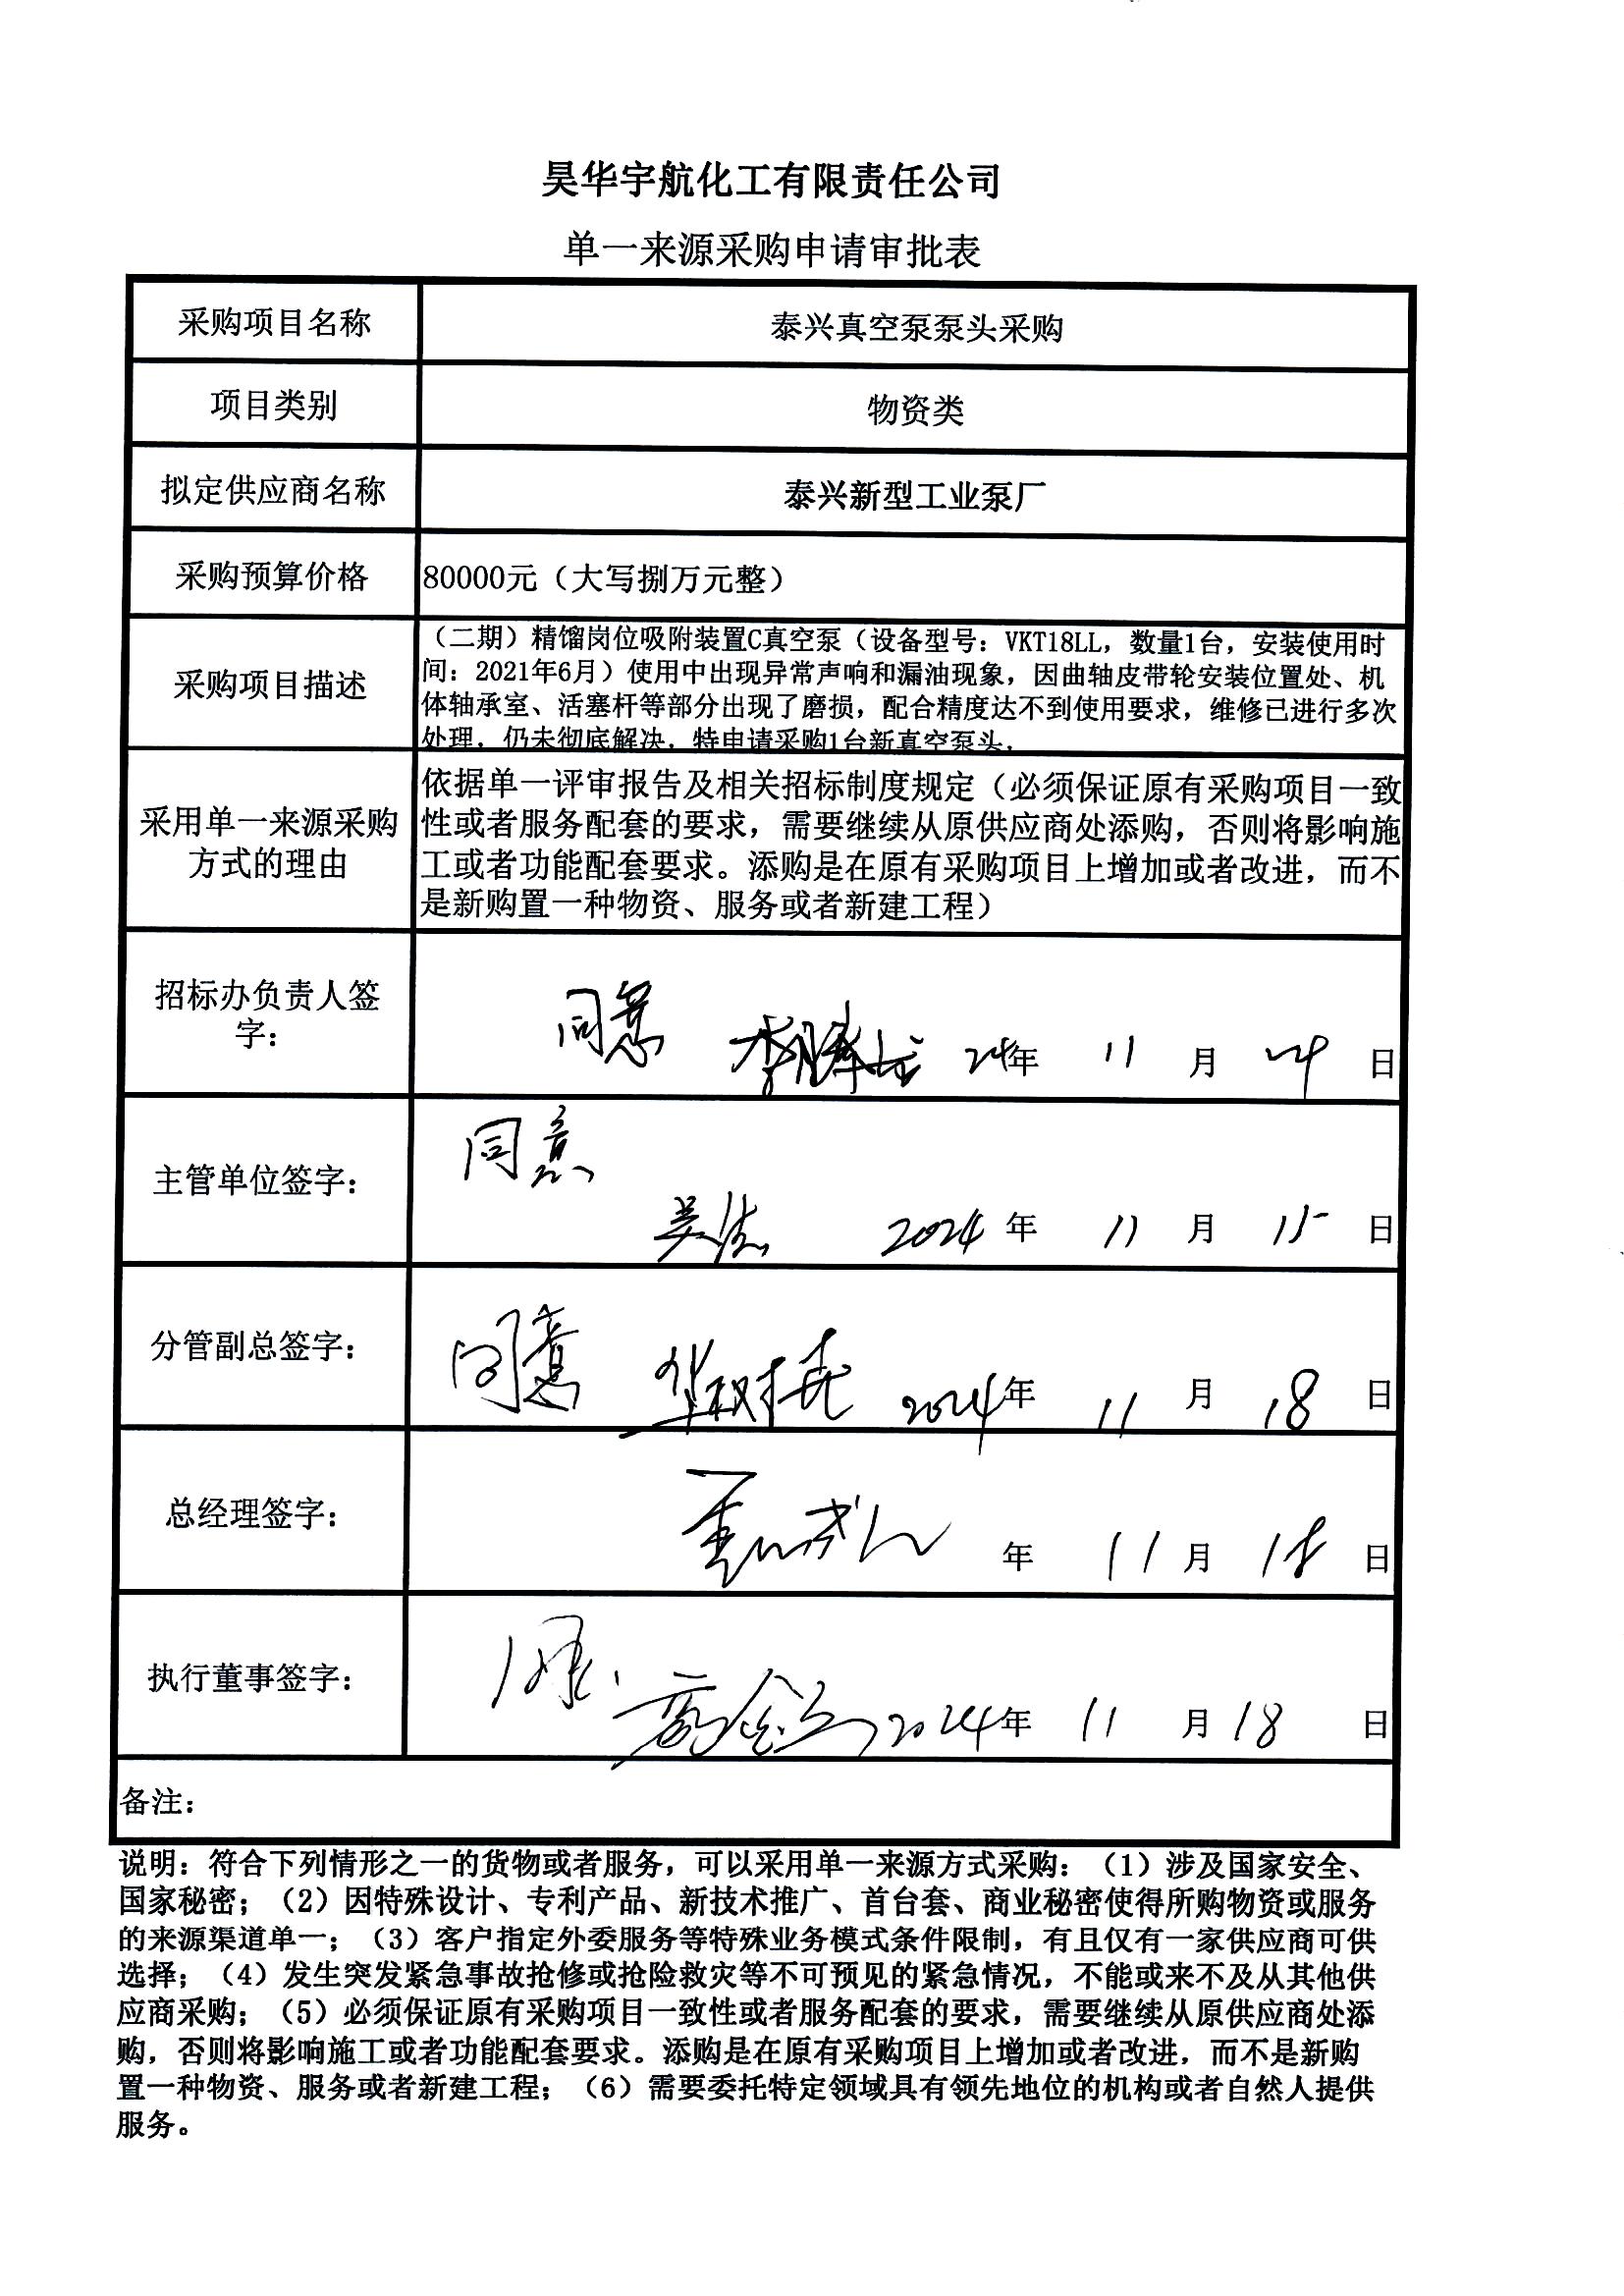 昊华宇航化工有限责任公司
单一来源采购申请审批表
采购项目名称
泰兴真空泵泵头采购
项目类别
物资类
拟定供应商名称
泰兴新型工业泵厂
采购预算价格
80000元（大写捌万元整）
采购项目描述
（二期）精馏岗位吸附装置C真空泵（设备型号：VKT18LL，数量1台，安装使用时
间：2021年6月）使用中出现异常声响和漏油现象，因曲轴皮带轮安装位置处、机
体轴承室、活塞杆等部分出现了磨损，配合精度达不到使用要求，维修已进行多次
处理，仍未彻底解决，特申请采购1台新真空泵头。
采用单一来源采购
方式的理由
依据单一评审报告及相关招标制度规定（必须保证原有采购项目一致
性或者服务配套的要求，需要继续从原供应商处添购，否则将影响施
工或者功能配套要求。添购是在原有采购项目上增加或者改进，而不
是新购置一种物资、服务或者新建工程）
招标办负责人签
字：
同意 24年 11 月 日
主管单位签字：
同意
2024 年 11 月 15 日
分管副总签字：
同意 2024年 11 月 18 日
总经理签字：
年 11 月 18 日
执行董事签字：
2024年 11 月 18 日
备注：
说明：符合下列情形之一的货物或者服务，可以采用单一来源方式采购：（1）涉及国家安全、
国家秘密；（2）因特殊设计、专利产品、新技术推广、首台套、商业秘密使得所购物资或服务
的来源渠道单一；（3）客户指定外委服务等特殊业务模式条件限制，有且仅有一家供应商可供
选择；（4）发生突发紧急事故抢修或抢险救灾等不可预见的紧急情况，不能或来不及从其他供
应商采购；（5）必须保证原有采购项目一致性或者服务配套的要求，需要继续从原供应商处添
购，否则将影响施工或者功能配套要求。添购是在原有采购项目上增加或者改进，而不是新购
置一种物资、服务或者新建工程；（6）需要委托特定领域具有领先地位的机构或者自然人提供
服务。